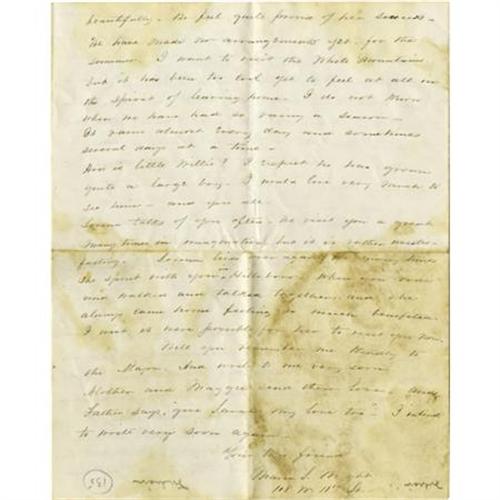 beautifully. We feel quite proud of her success.
We have made no arrangements yet for the
summer. I want to visit the White Mountains
but it has been too cool yet to feel at all in
the spirit of leaving home. I do not know
when we have had so rainy a season.
It rains almost every day and sometimes
several days at a time.
How is little Willie? I expect he has grown
quite a large boy. I would love very much to
see him and you all.
talks of you often. We visit you a great
many times in imagination but it is rather unsatis-
factory. over again many times
the spirit with you in Hillsboro when you
and walked and talked together, and she
always came home feeling so much benefited.
I wish it were possible for her to visit you now.
Will you remember me kindly to
the Major. And write to me very soon
Mother and Maggie send their love. And
Father says, "give Sarah my love too." I intend
to write very soon again.
Your true friend
Wright
108 W. St.
(135)